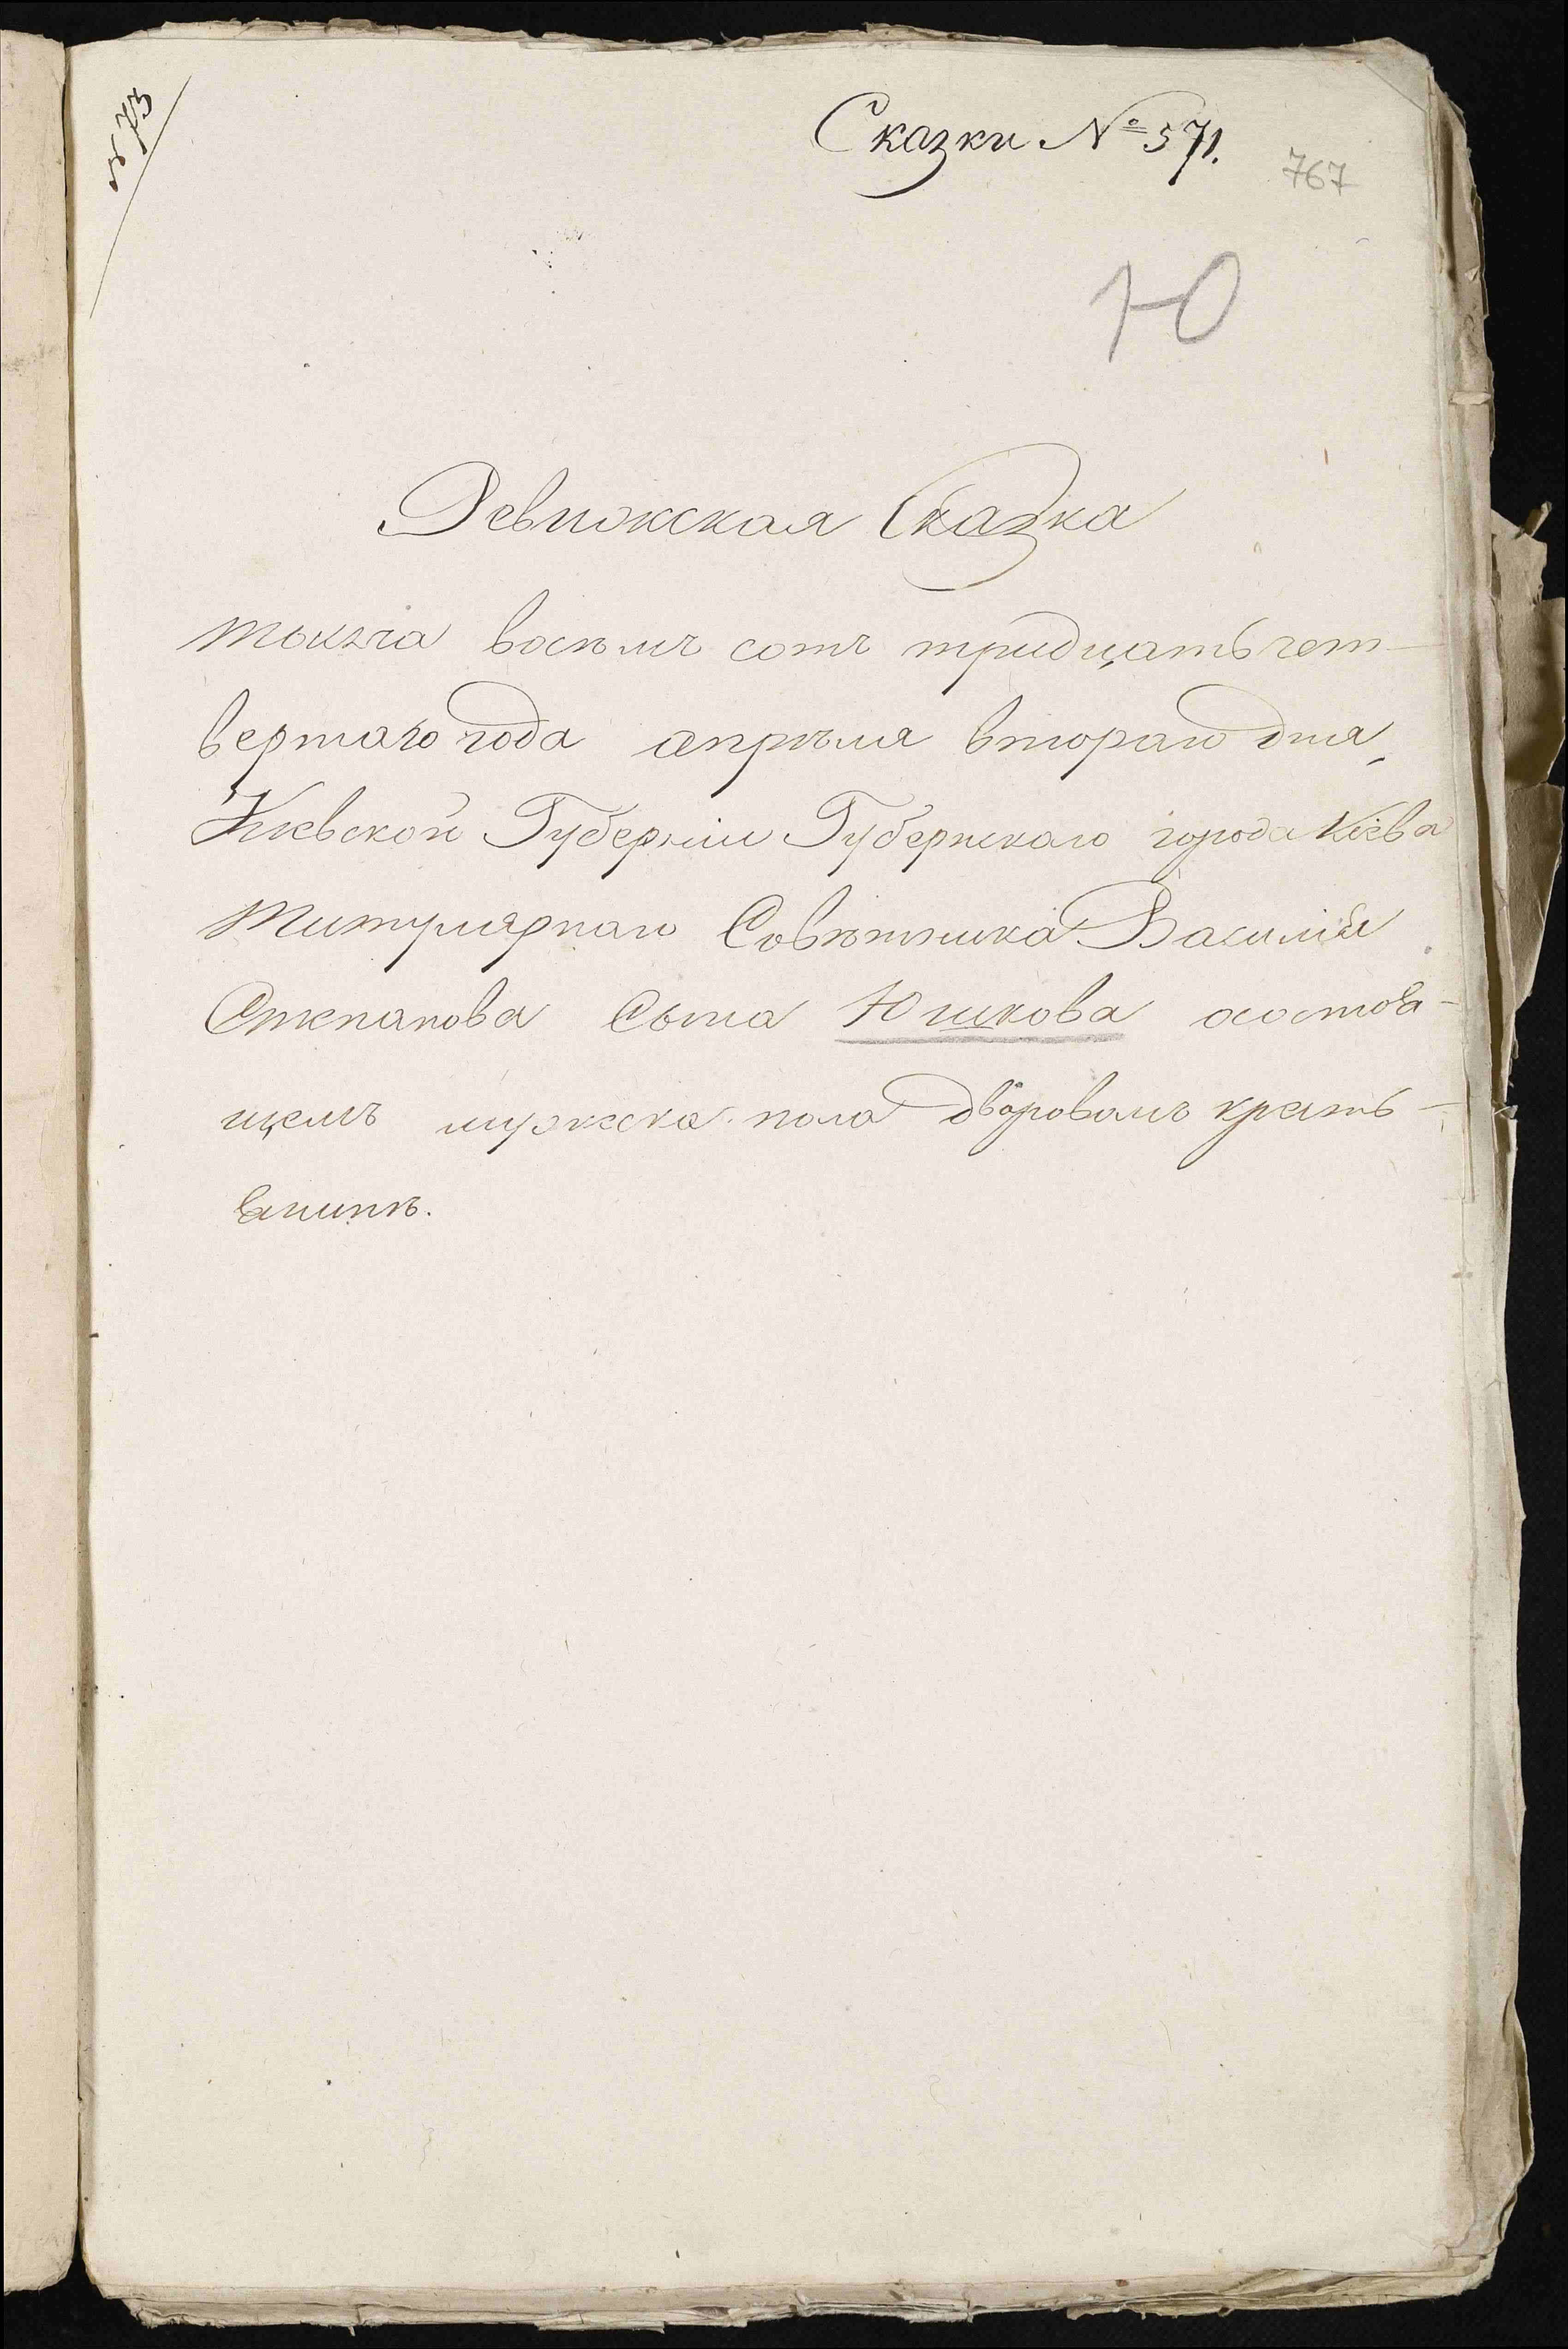 Сказки № 571.
767
Ю
Ревижская Сказка
тысяча восѣмъ сотъ тридцать чет-
вертаго года апрѣля втораго дня,
Киевской Губернии Губернскаго города Кіева
титулярнаго Совѣтника Василия
Степанова Сына Юшкова осостоя-
щемъ мужеска пола дворовомъ крѣсть-
янинѣ.